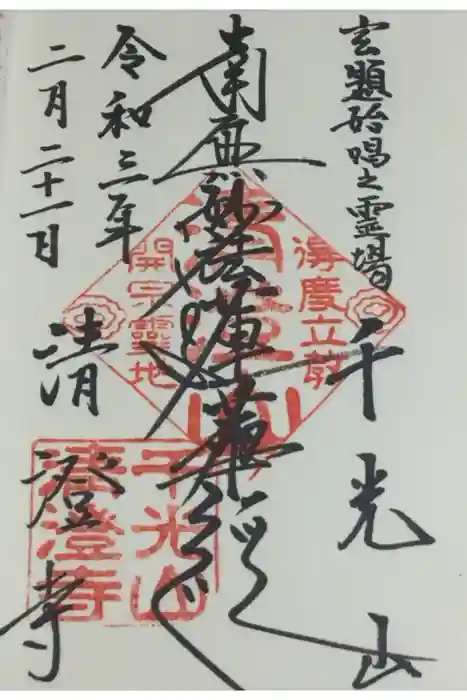 玄題始唱之霊場
千光山
南無妙法蓮華経
令和三年
二月二十一日
清澄寺
清澄山
得度立教
開宗霊地
千光山
清澄寺